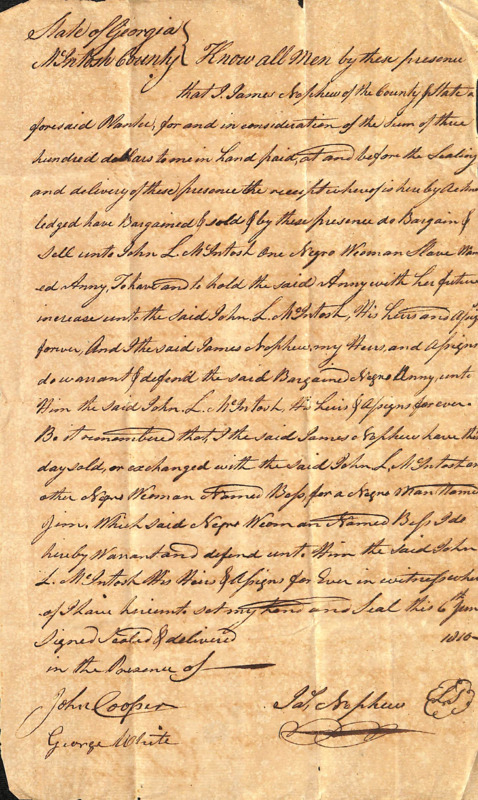 State of Georgia
McIntosh County } Know all Men by these presence
that I. James Nephew of the County & State a
foresaid Planter, for and in consideration of the Sum of three
hundred dollars to me in hand paid, at and before the Sealing
and delivery of these presence the receipt whereof is here by Acknow
ledged have Bargained & sold & by these presence do Bargain &
Sell unto John L. McIntosh One Negro Weoman Slave Nam
ed Anny, To have and to hold the said Anny with her future
increase unto the said John. L. McIntosh, His heirs and Assigns
forever, And I the said James Nephew, my Heirs, and Assigns
do warrant & defend the said Bargained Negro Anny, unto
Him the said John. L. McIntosh, His heirs & Assigns forever-
Be it remembered that, I the said James Nephew have this
day sold, or exchanged with the said John L. McIntosh an
other Negro Weoman Named Bess, for a Negro Man Named
Jim. Which said Negro Weoman Named Bess I do
hereby Warrant and defend unto Him the said John
L. McIntosh His Heirs & Assigns for Ever in witness wher
of I have hereunto set my hand and Seal this 6th
Signed Sealed & delivered 1810-
in the Presence of
John Cooper Jas. Nephew LS
George White